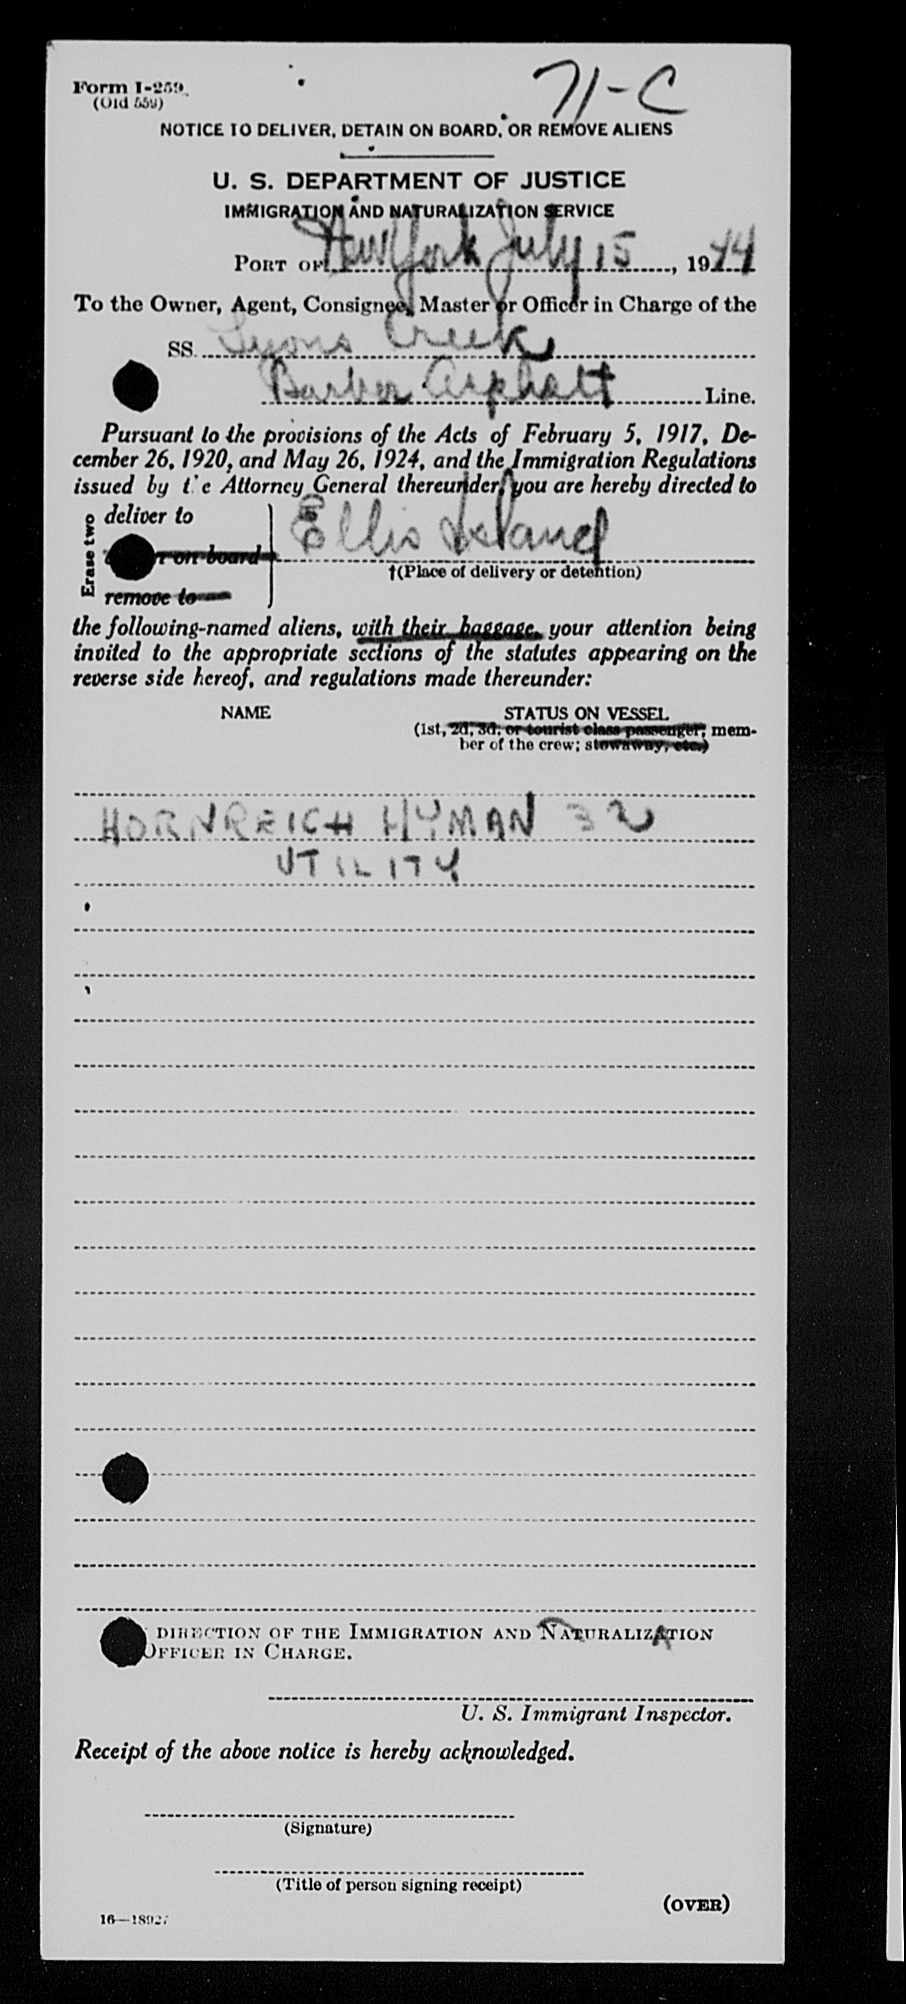 71-C
Form I-259
(Old 559)
NOTICE TO DELIVER, DETAIN ON BOARD, OR REMOVE ALIENS
U. S. DEPARTMENT OF JUSTICE
IMMIGRATION AND NATURALIZATION SERVICE
PORT OF New York July 15, 1944
To the Owner, Agent, Consignee, Master or Officer in Charge of the
SS. Lyons Creek
Barber Asphalt Line.
Pursuant to the provisions of the Acts of February 5, 1917, De-
cember 26, 1920, and May 26, 1924, and the Immigration Regulations
issued by the Attorney General thereunder, you are hereby directed to
Erase two
deliver to
on board
remove to
Ellis Island
†(Place of delivery or detention)
the following-named aliens, with their baggage, your attention being
invited to the appropriate sections of the statutes appearing on the
reverse side hereof, and regulations made thereunder:
NAME STATUS ON VESSEL
(1st, 2d, 3d, or tourist class passenger; mem-
ber of the crew; stowaway, etc.)
HORNREICH HYMAN 32
UTILITY
DIRECTION OF THE IMMIGRATION AND NATURALIZATION
OFFICER IN CHARGE.
U. S. Immigrant Inspector.
Receipt of the above notice is hereby acknowledged.
(Signature)
(Title of person signing receipt)
(OVER)
16—18927